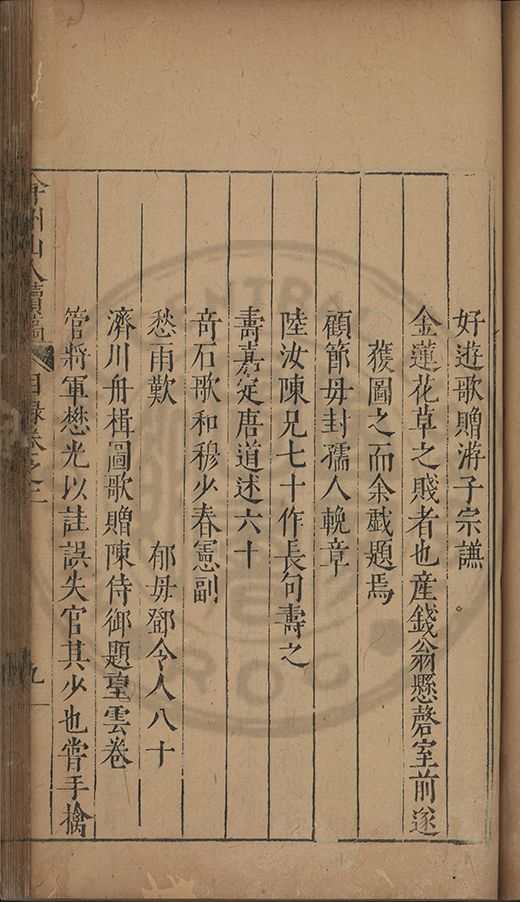 好遊歌贈游子宗謙
金蓮花草之賤者也産錢翁懸磬室前遂
蒦圖之而余戲題焉
顧節母封孺人輓章
陸汝陳兄七十作長句壽之
壽嘉定唐道述六十
奇石歌和穆少春憲副
愁雨歎 郁母鄧令人八十
濟川舟楫圖歌贈陳侍御題望雲卷
管將軍懋光以詿誤失官其少也嘗手擒
弇州山人續稿 目錄卷之二 九